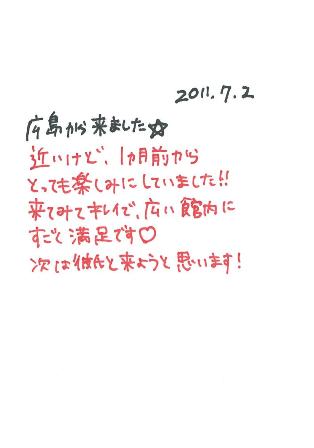 2011.7.2
広島から来ました☆
近いけど、1ヵ月前から
とっても楽しみにしていました!!
来てみてキレイで、広い館内に
すごく満足です♡
次は彼氏と来ようと思います!